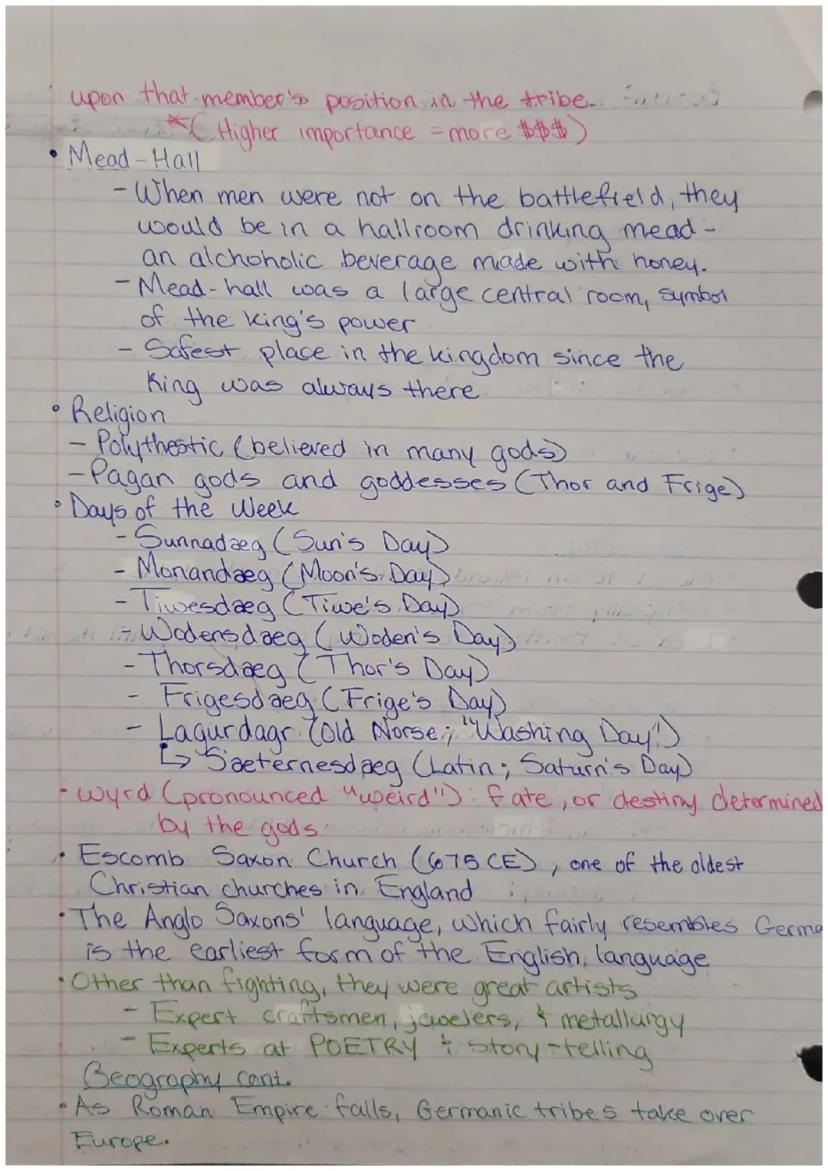 upon that member's position in the tribe.
*(Higher importance = more $$$)
• Mead-Hall
- When men were not on the battlefield, they
would be in a hallroom drinking mead -
an alchoholic beverage made with honey.
- Mead-hall was a large central room, symbol
of the king's power
- Safest place in the kingdom since the
King was always there
• Religion
- Polythestic (believed in many gods)
- Pagan gods and goddesses (Thor and Frige)
• Days of the Week
- Sunnadaeg (Sun's Day)
- Monandaeg (Moon's Day)
- Tiwesdaeg (Tiwe's Day)
- Wodensdaeg (Woden's Day)
- Thorsdaeg (Thor's Day)
- Frigesdaeg (Frige's Day)
- Lagurdagr (Old Norse; "Washing Day")
↳ Saeternesdaeg (Latin; Saturn's Day)
• Wyrd (pronounced "weird"): fate, or destiny determined
by the gods
• Escomb Saxon Church (675 CE), one of the oldest
Christian churches in England
• The Anglo Saxons' language, which fairly resembles Germa
is the earliest form of the English language
• Other than fighting, they were great artists
- Expert craftsmen, jewelers, & metallurgy
- Experts at POETRY & story-telling
Geography cont.
• As Roman Empire falls, Germanic tribes take over
Europe.